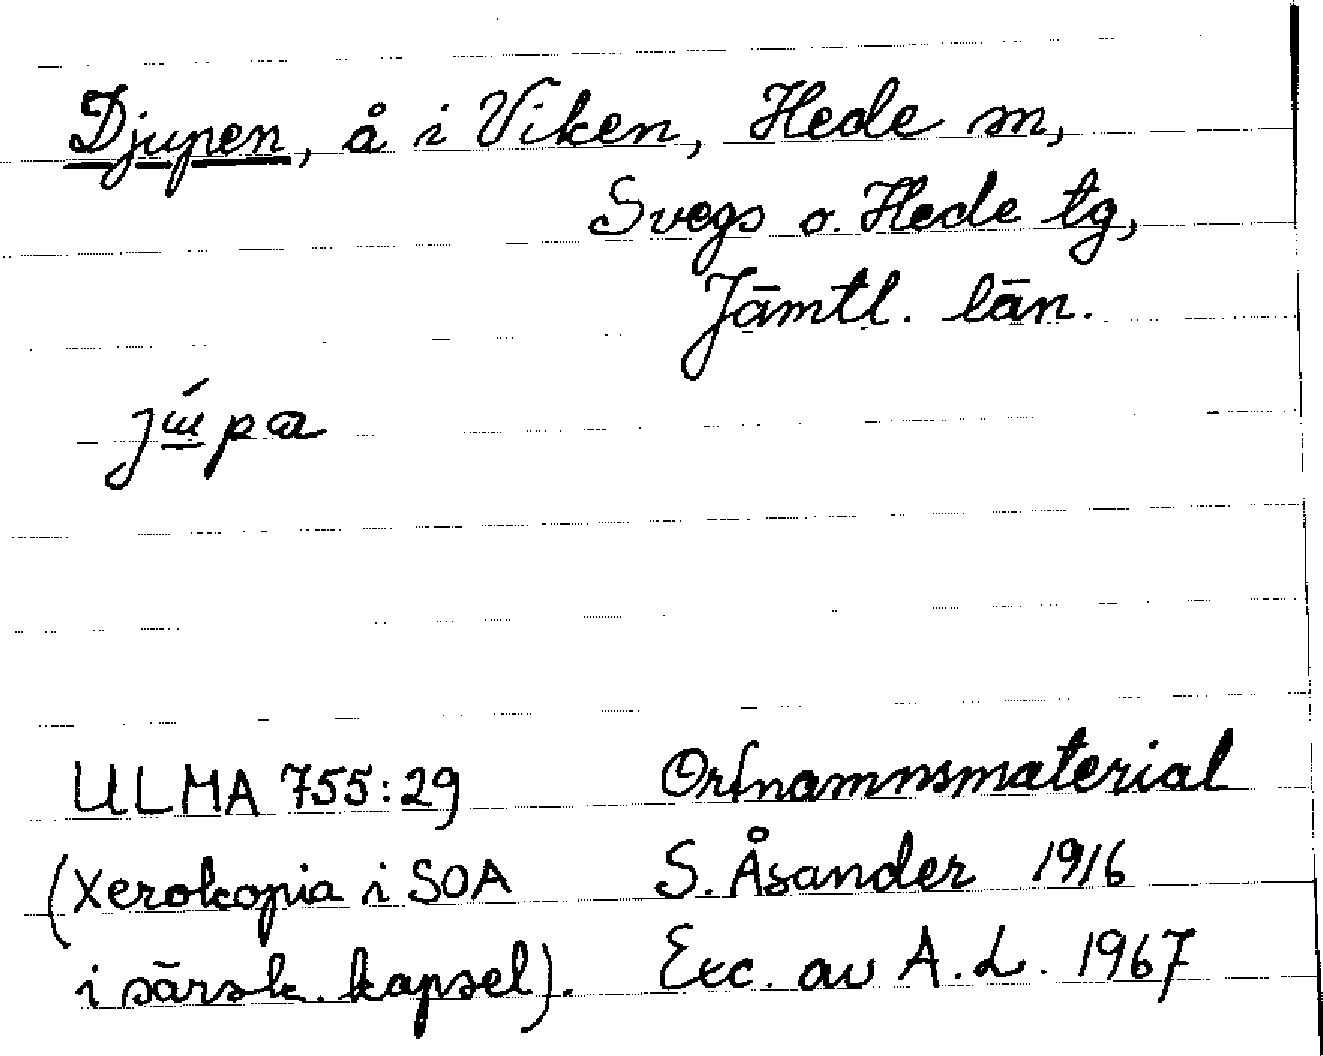 Djupen, å i Viken, Hede sn,
Svegs o. Hede tg,
Jämtl. län.
ULMA 755:29 Ortnamnsmaterial
(Xerokopia i SOA S. Åsander 1916
i särsk. kapsel). Exc. av A.L. 1967